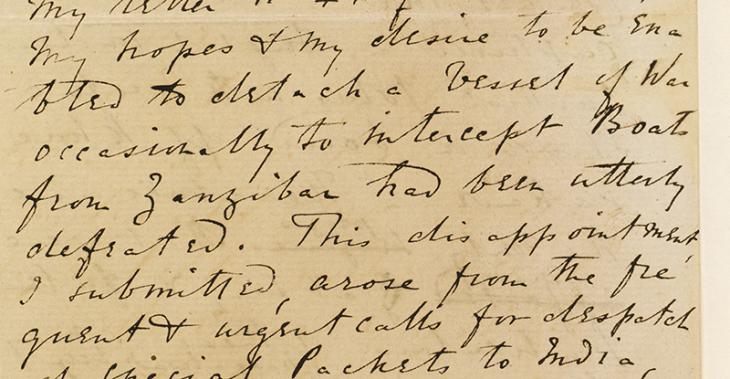 My letter
My hopes & my desire to be Ena
bled to detach a Vessel of War
occasionally to intercept Boats
from Zanzibar had been utterly
defeated. This disappointment,
I submitted, arose from the fre
quent & urgent calls for despatch
of Special Packets to India,